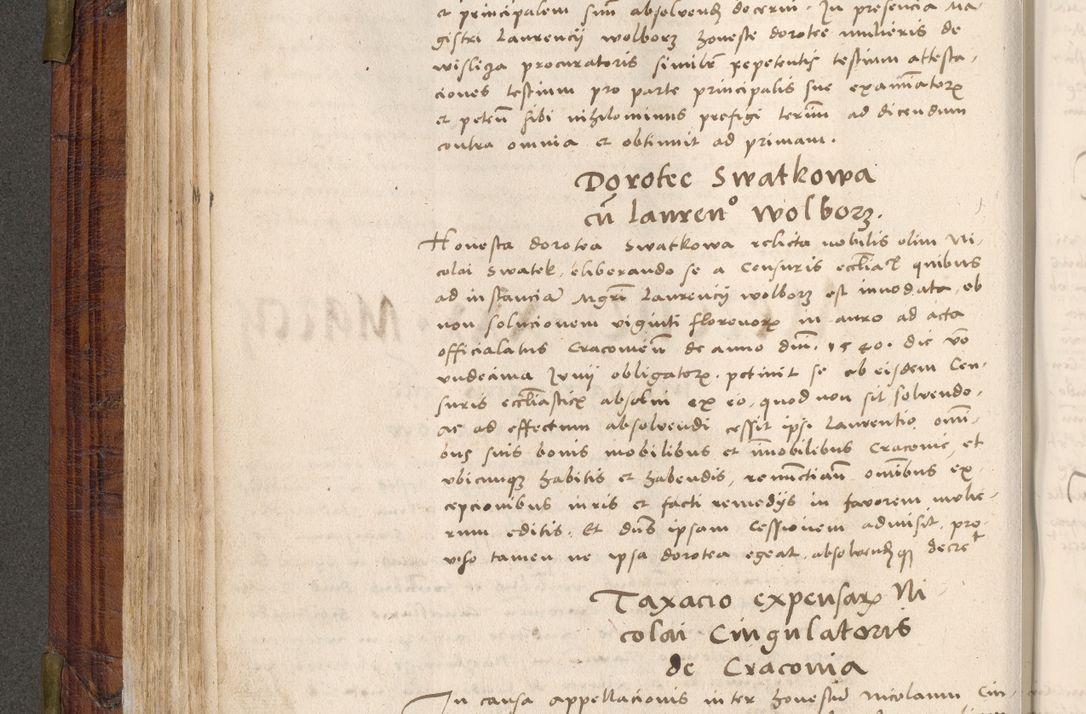 et principalem suu absolvend decerni. In presencia Ma-
gistri Laurencij wolborz honeste dorotee mulieris de
wislicza procuratoris similr repetentis testium attesta-
ciones testium pro parte principalis sue examinatorz
et petent sibi nihilominus prefigi terim ad dicendum
contra omnia et obtinuit ad primam.
Dorotee Swatkowa
cu lauren° wolborz.
Honesta dorotea Swatkowa relicta nobilis olim Ni-
colai Swatek, eliberando se a Censuris ecclia quibus
ad instancia Mgri Laurencij wolborz est innodata, ob
non solucionem viginti florenorz in auro ad acta
officialatus Cracovien de anno dni. 1540. die vo
undecima Junij obligatorz. petivit se ab eisdem Cen-
suris eccliasticz absolvi ex eo, quod non sit solvendo,
ac ad effectum absolvendi cessit ipsi laurentio omi-
bus suis bonis mobilibus et imobilibus Cracovie, et
ubicunqz habitis et habendis, renuctian omibus ex-
cepcionibus iuris et facti remedijs in favorem mulie-
rum editis. Et dns ipsam Cessionem admisit, pro-
viso tamen ne ipsa dorotea egeat, absolvendqz decret
Taxacio expensarz Ni
colai Cingulatoris
de Cracovia
In causa appellacionis inter honestu Nicolaum Cin-